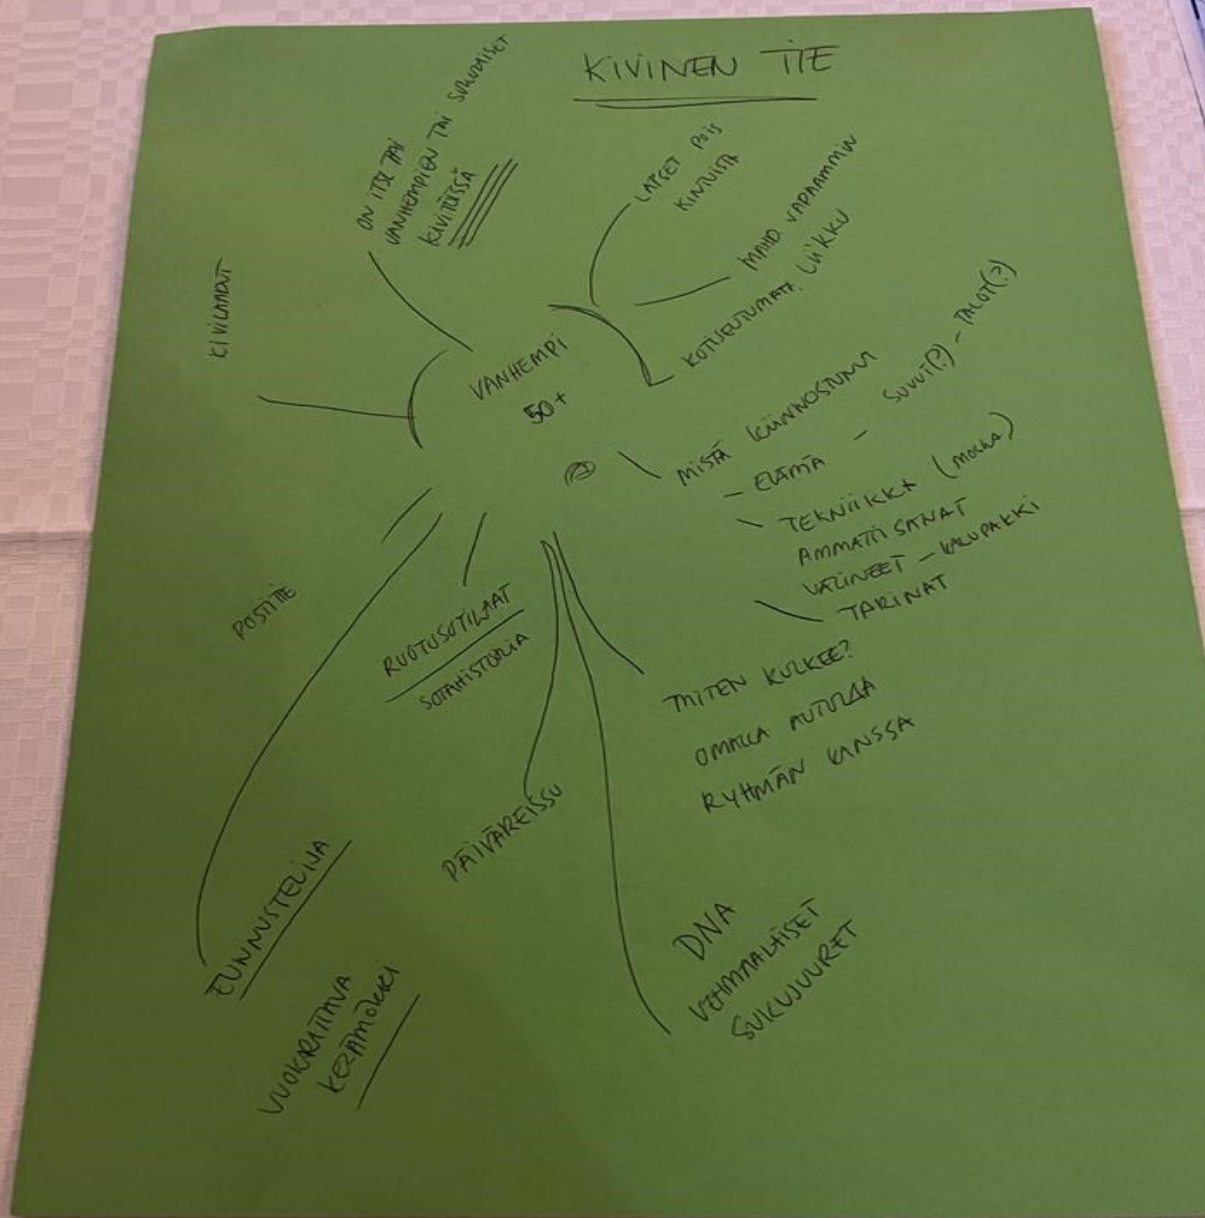 KIVINEN TIE
ON ITSE TAI
VANHEMPIEN TAI SUKULAISET
KIVITÖISSÄ
LAPSET POIS
KINTUISTA
MAHD VAPAAMMIN
LIIKKU
KOTISEUTUMATK.
KIVILAADUT
VANHEMPI
50+
MISTÄ KIINNOSTUNUT
- ELÄMÄ - SUVUT(?) - TALOT(?)
- TEKNIIKKA (MOSKA)
AMMATTISANAT
VÄLINEET - KALUPAKKI
TARINAT
POSTITIE
RUOTUSOTILAAT
SOTAHISTORIA
MITEN KULKEE?
OMALLA AUTOLLA
RYHMÄN KANSSA
PÄIVÄREISSU
TUNNUSTELIJA
VUOKRATTAVA
KESÄMÖKKI
DNA
VEHMAALAISET
SUKUJUURET